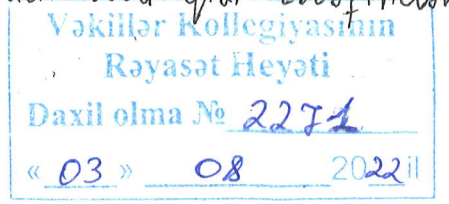 Vəkillər Kollegiyasının
Rəyasət Heyəti
Daxil olma № 2271
« 03 » 08 2022 il